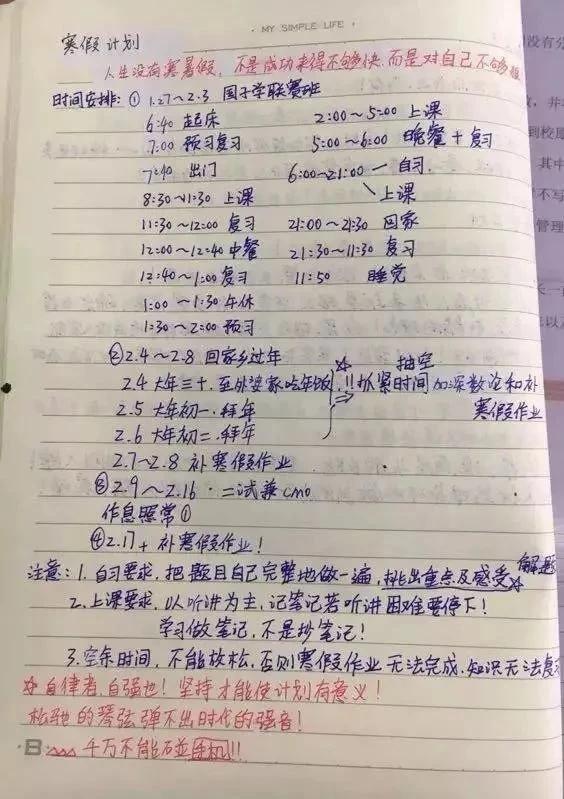 · MY SIMPLE LIFE ·
寒假计划
人生没有寒暑假，不是成功来得不够快，而是对自己不够狠
时间安排：① 1.27～2.3 国子学联赛班
6:40 起床 2:00～5:00 上课
7:00 预习复习 5:00～6:00 晚餐＋复习
7:40 出门 6:00～21:00 自习
上课
8:30～11:30 上课
11:30～12:00 复习 21:00～21:30 回家
12:00～12:40 中餐 21:30～11:30 复习
12:40～1:00 复习 11:50 睡觉
1:00～1:30 午休
1:30～2:00 预习
② 2.4～2.8 回家乡过年 抽空
2.4 大年三十，至外婆家吃年饭，!! 抓紧时间加深数论和补
寒假作业
2.5 大年初一．拜年
2.6 大年初二．拜年
2.7～2.8 补寒假作业
③ 2.9～2.16 二试兼cmo
作息照常①
④ 2.17+ 补寒假作业！
注意：1. 自习要求，把题目自己完整地做一遍，挑出重点及感受 解题
2. 上课要求，以听讲为主，记笔记若听讲困难要停下！
学习做笔记，不是抄笔记！
3. 空余时间，不能放松，否则寒假作业无法完成，知识无法复
☆自律者，自强也！坚持才能使计划有意义！
松弛的琴弦弹不出时代的强音！
千万不能碰手机!!
没有
到校
其中
不写
管理